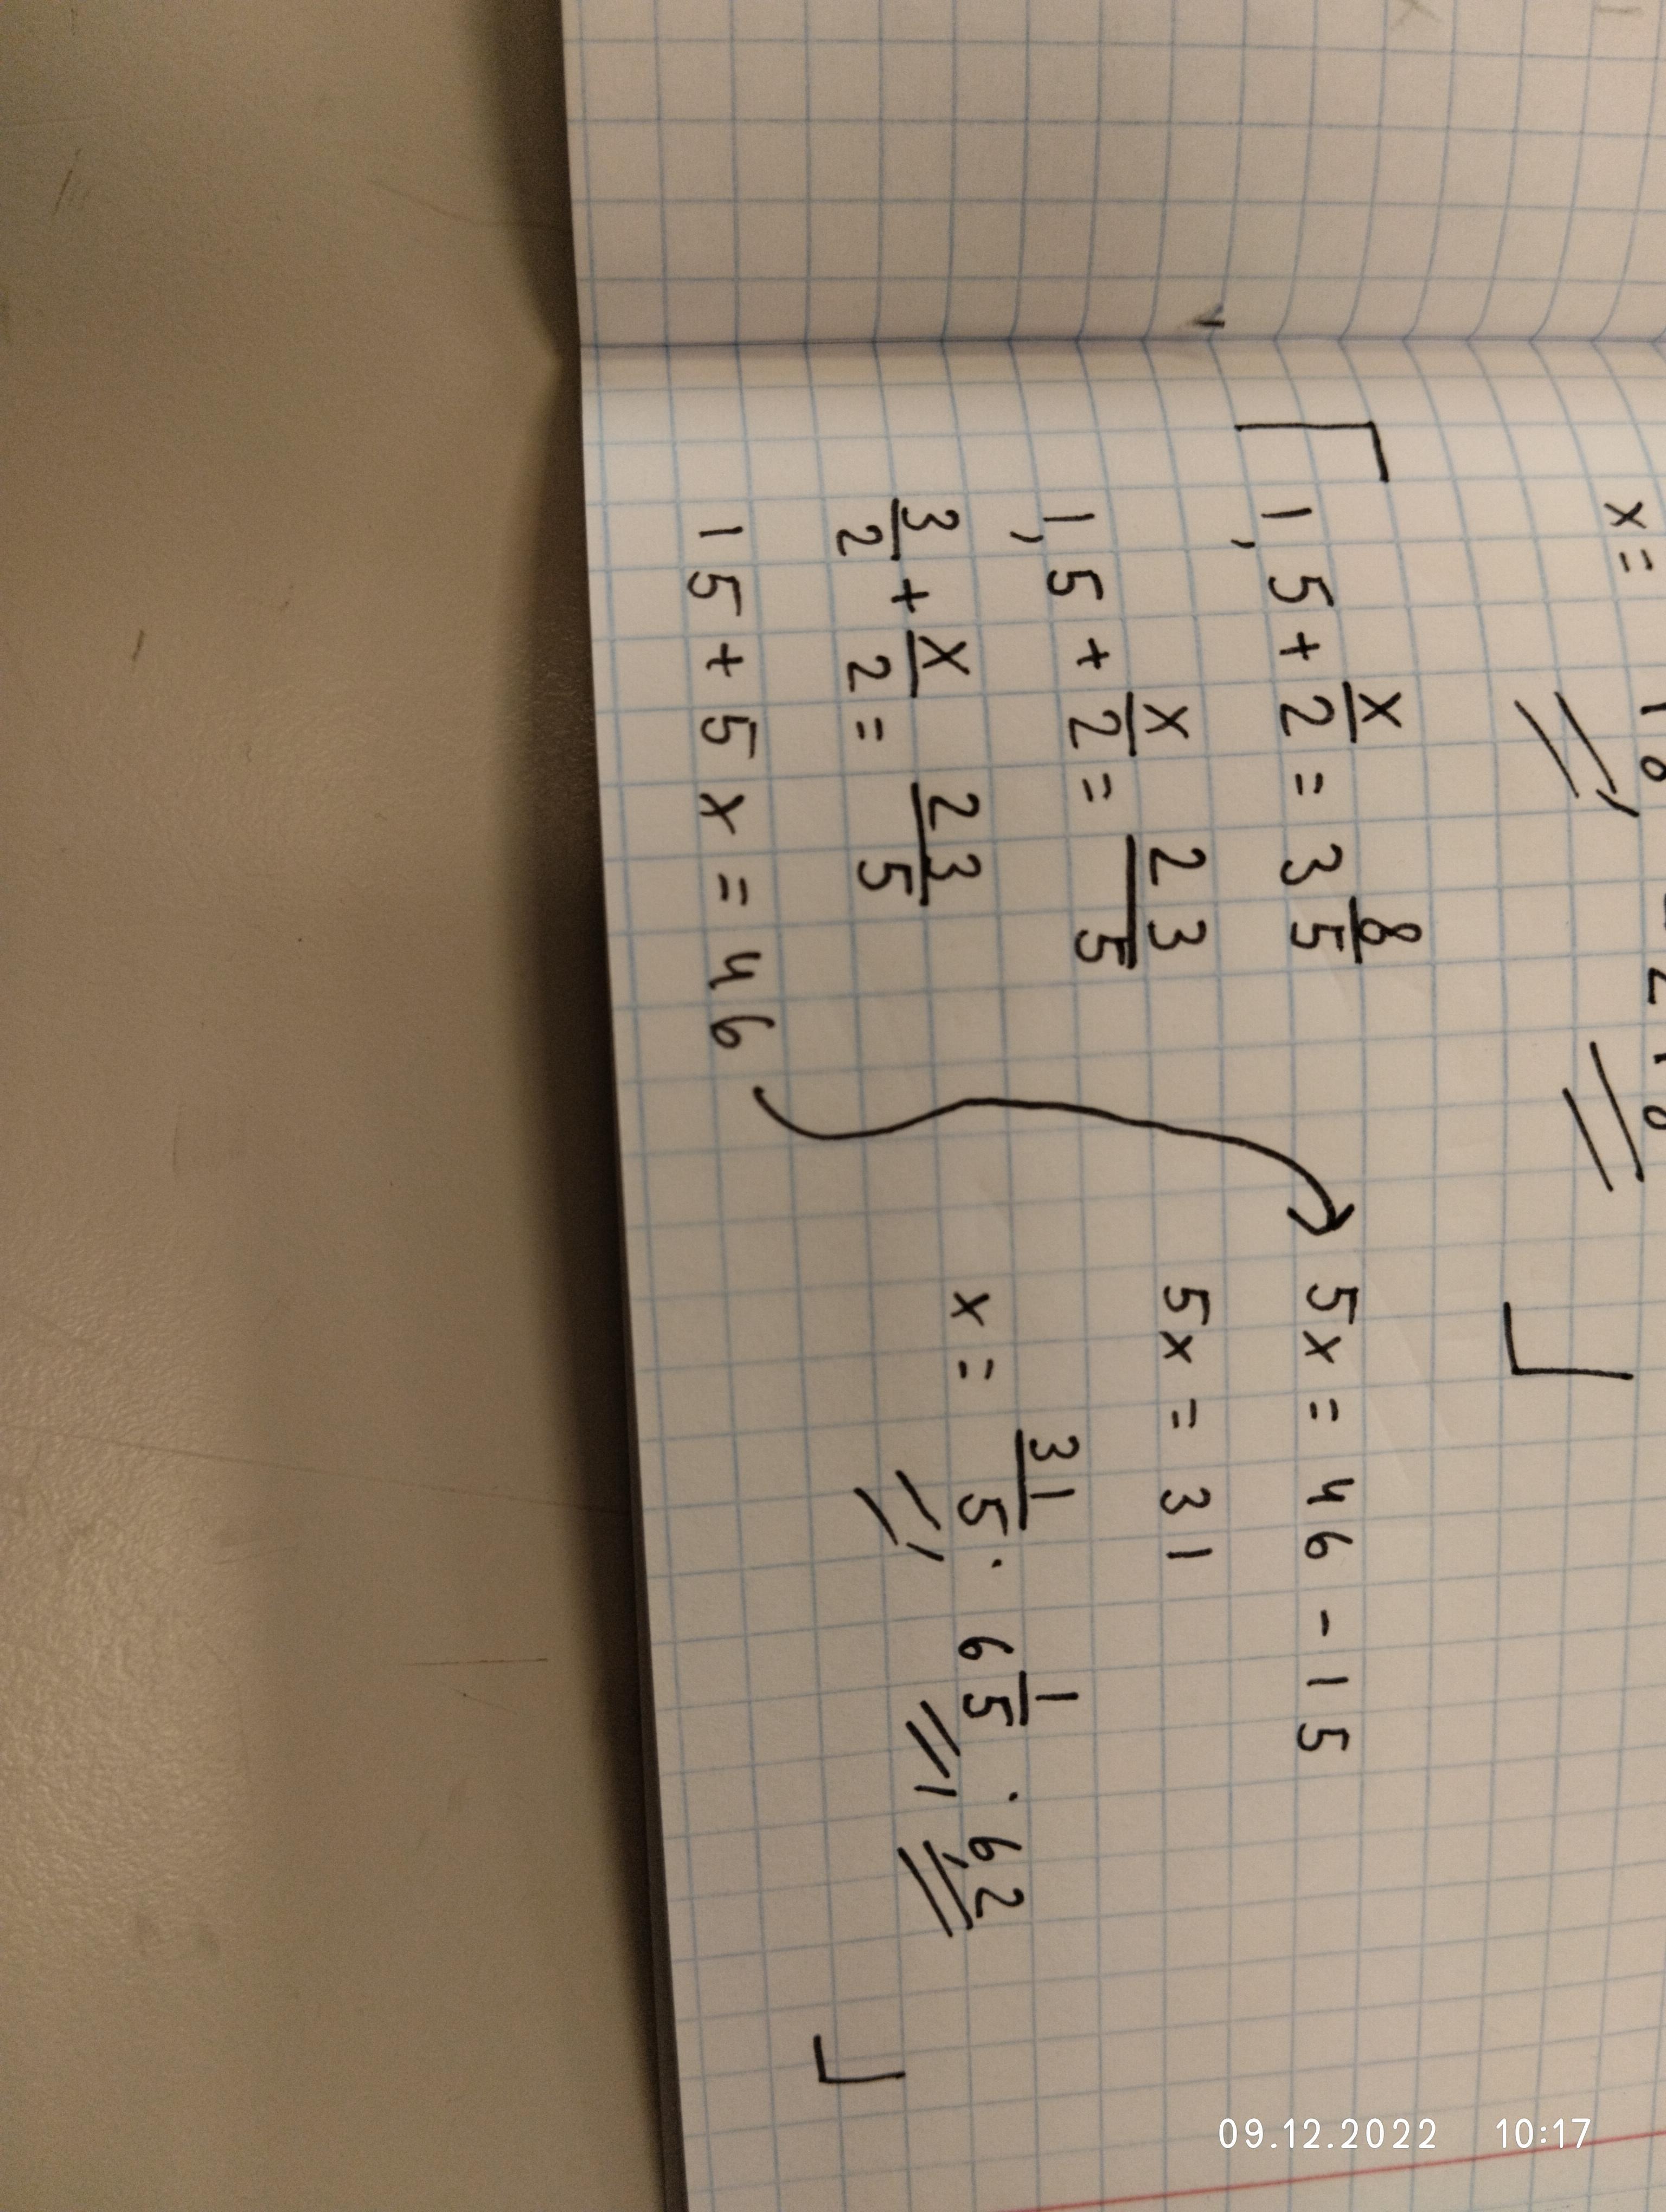 x =
1,5 + x/2 = 3 8/5
1,5 + x/2 = 23/5
3/2 + x/2 = 23/5
15 + 5x = 46
5x = 46 - 15
5x = 31
x = 31/5 , 6 1/5 , 6,2
09.12.2022 10:17